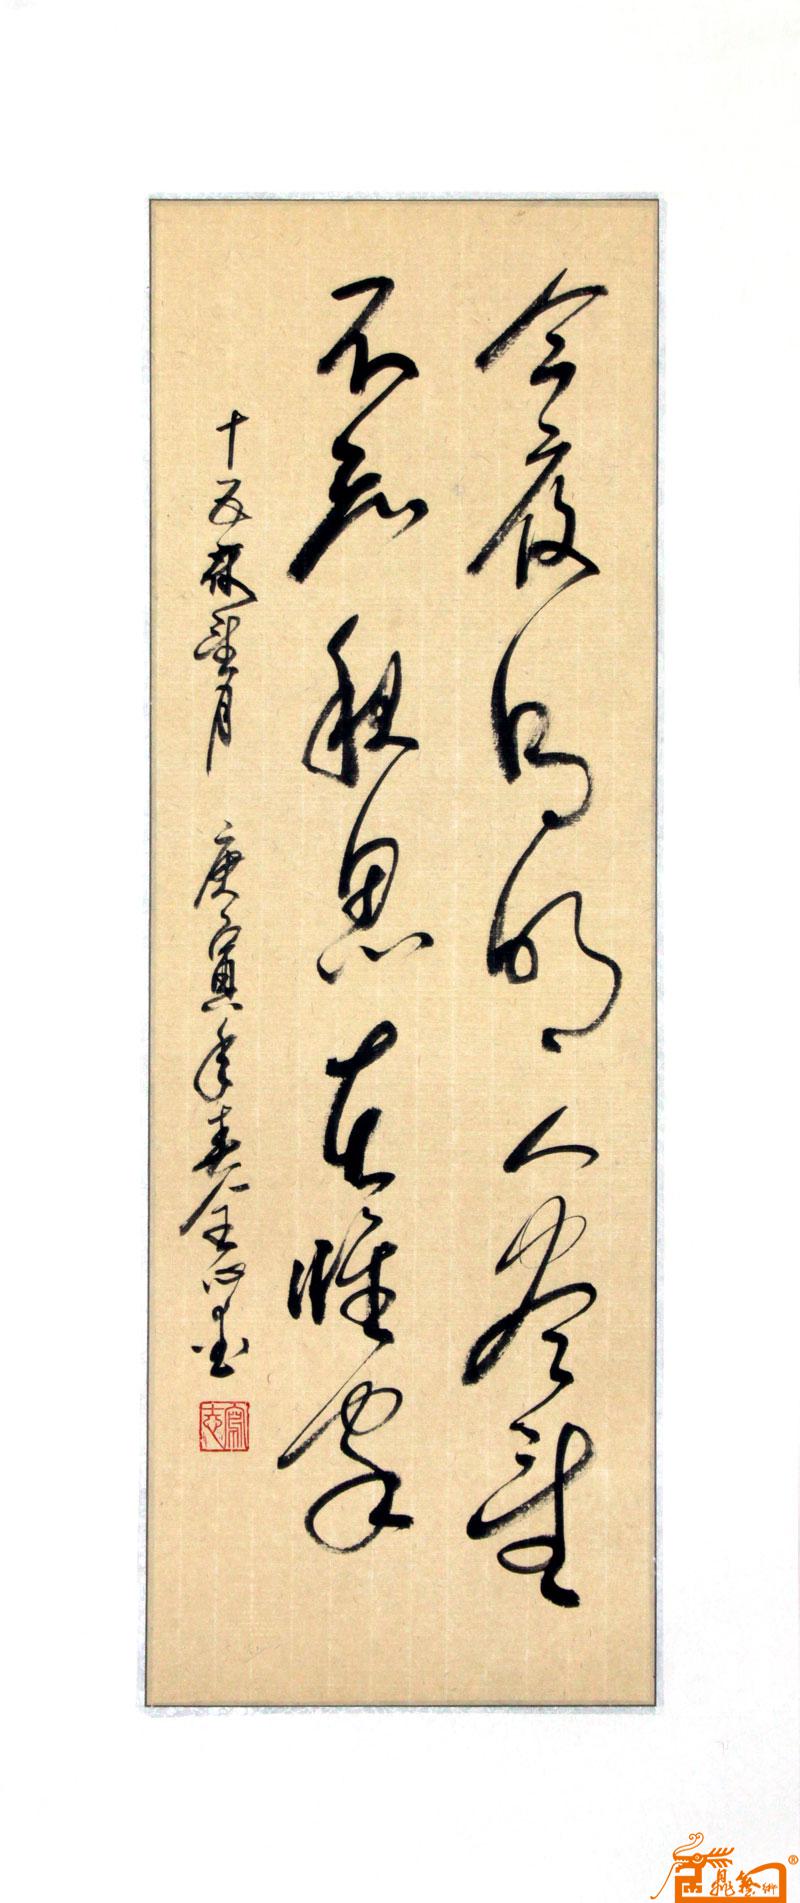 今夜月明人尽望
不知秋思在谁家
十五夜望月 庚寅年春金心书